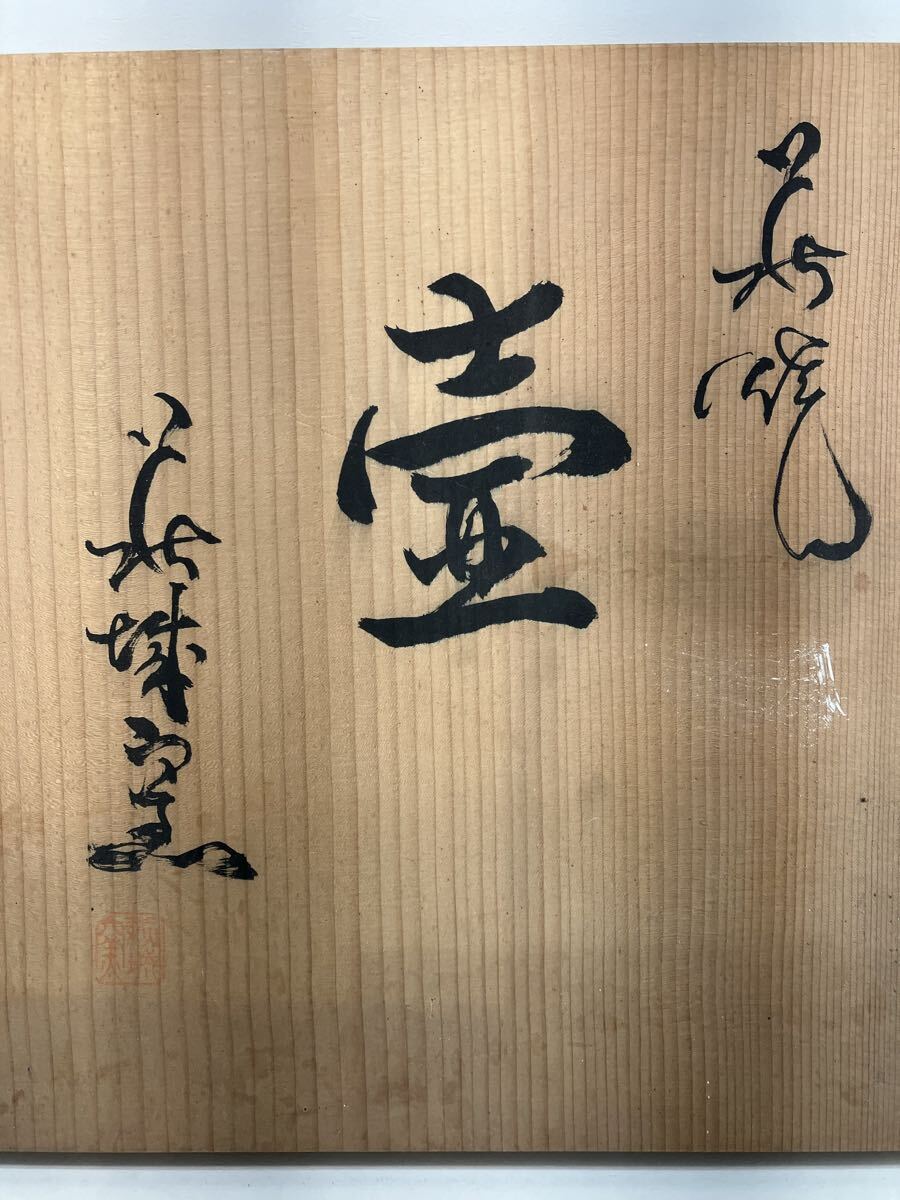 萩焼
壷
萩城窯